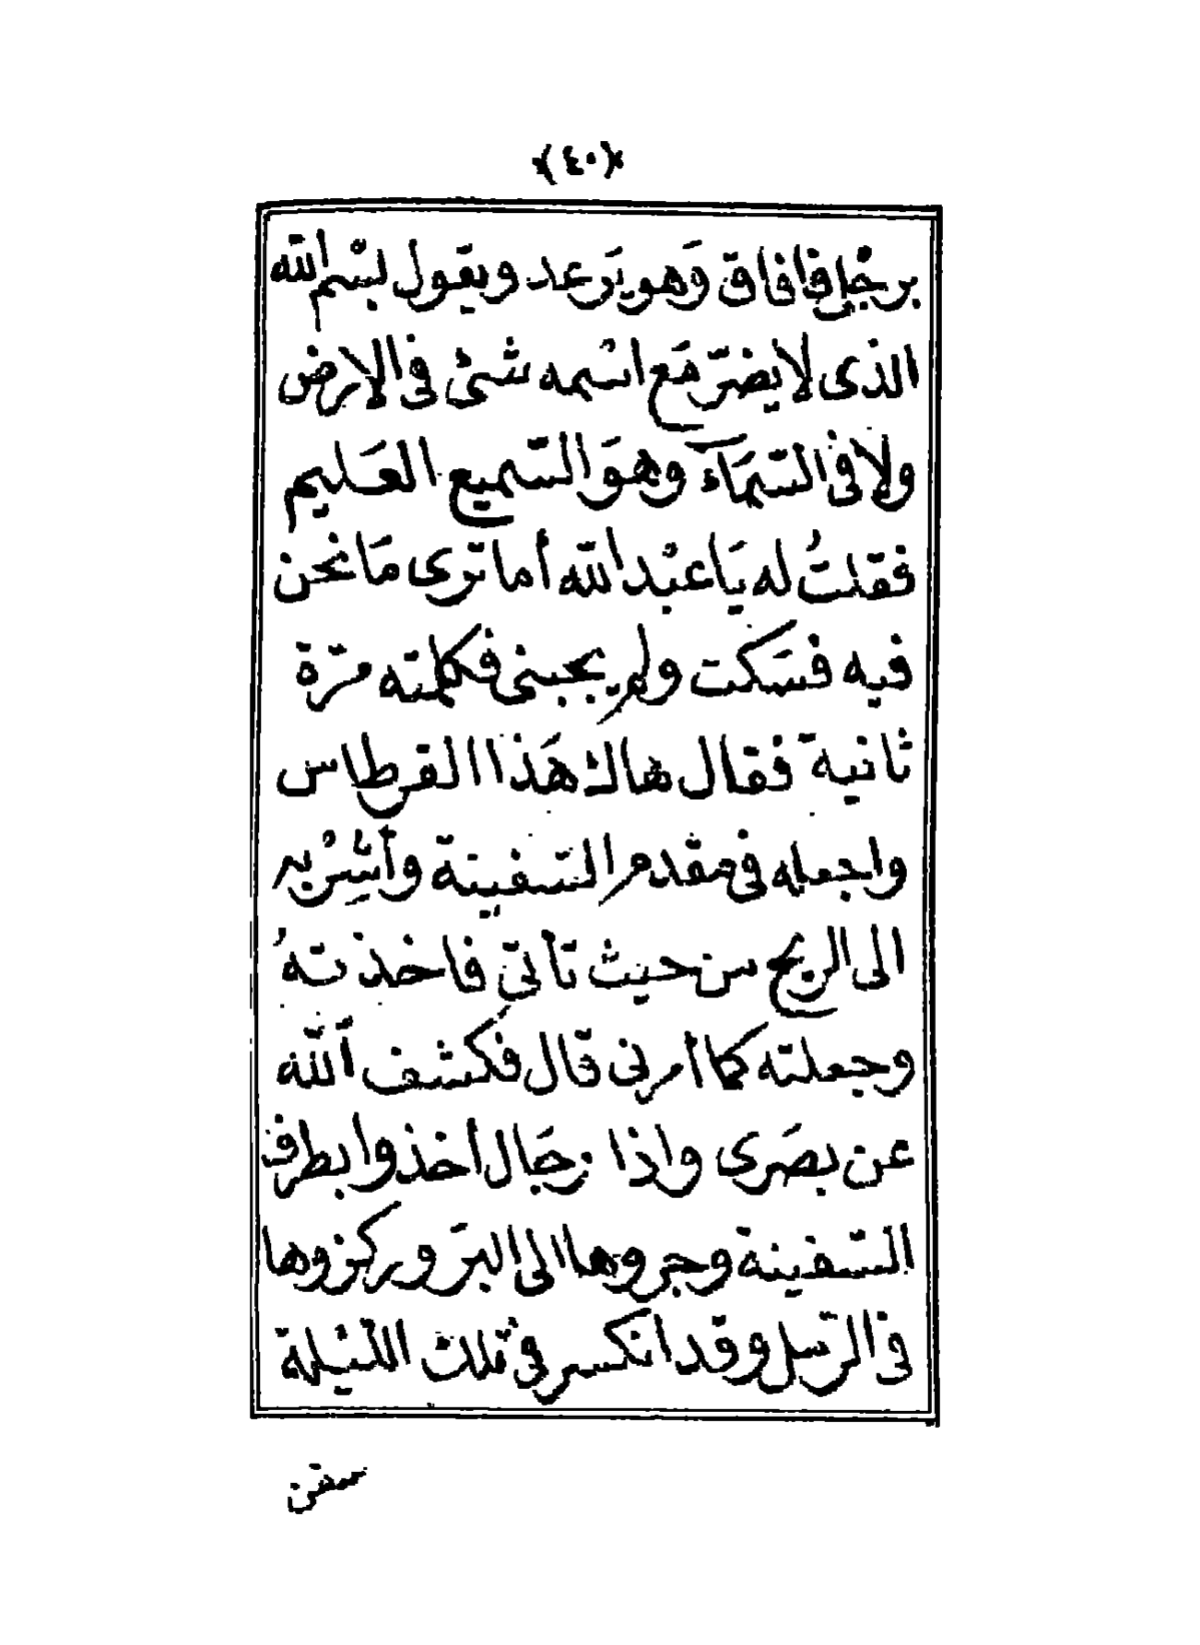 (٤٠)
برجْلى فافاق وَهو يَرعد ويقول بسْم الله
الذى لا يضرّ مَع اسْمه شئ فى الارض
ولا فى السّمَآء وهوَ السّميع العَليم
فقلتُ له يَا عبْد الله أما ترى مَا نحن
فيه فسَكت ولم يجبنى فكلمته مرّة
ثانية فقال هاك هَذا القرطاس
واجعله فى مقدم السّفينة وأشِرْ به
الى الريح من حيث تأتى فاخذتهُ
وجعلته كما أمرنى قال فكشف الله
عن بصَرى واذا رجَال أخذوا بطرف
السّفينة وجروها الى البرّ وركزوها
فى الرّمل وقد انكسر فى تلك اللّيْلة
سفن